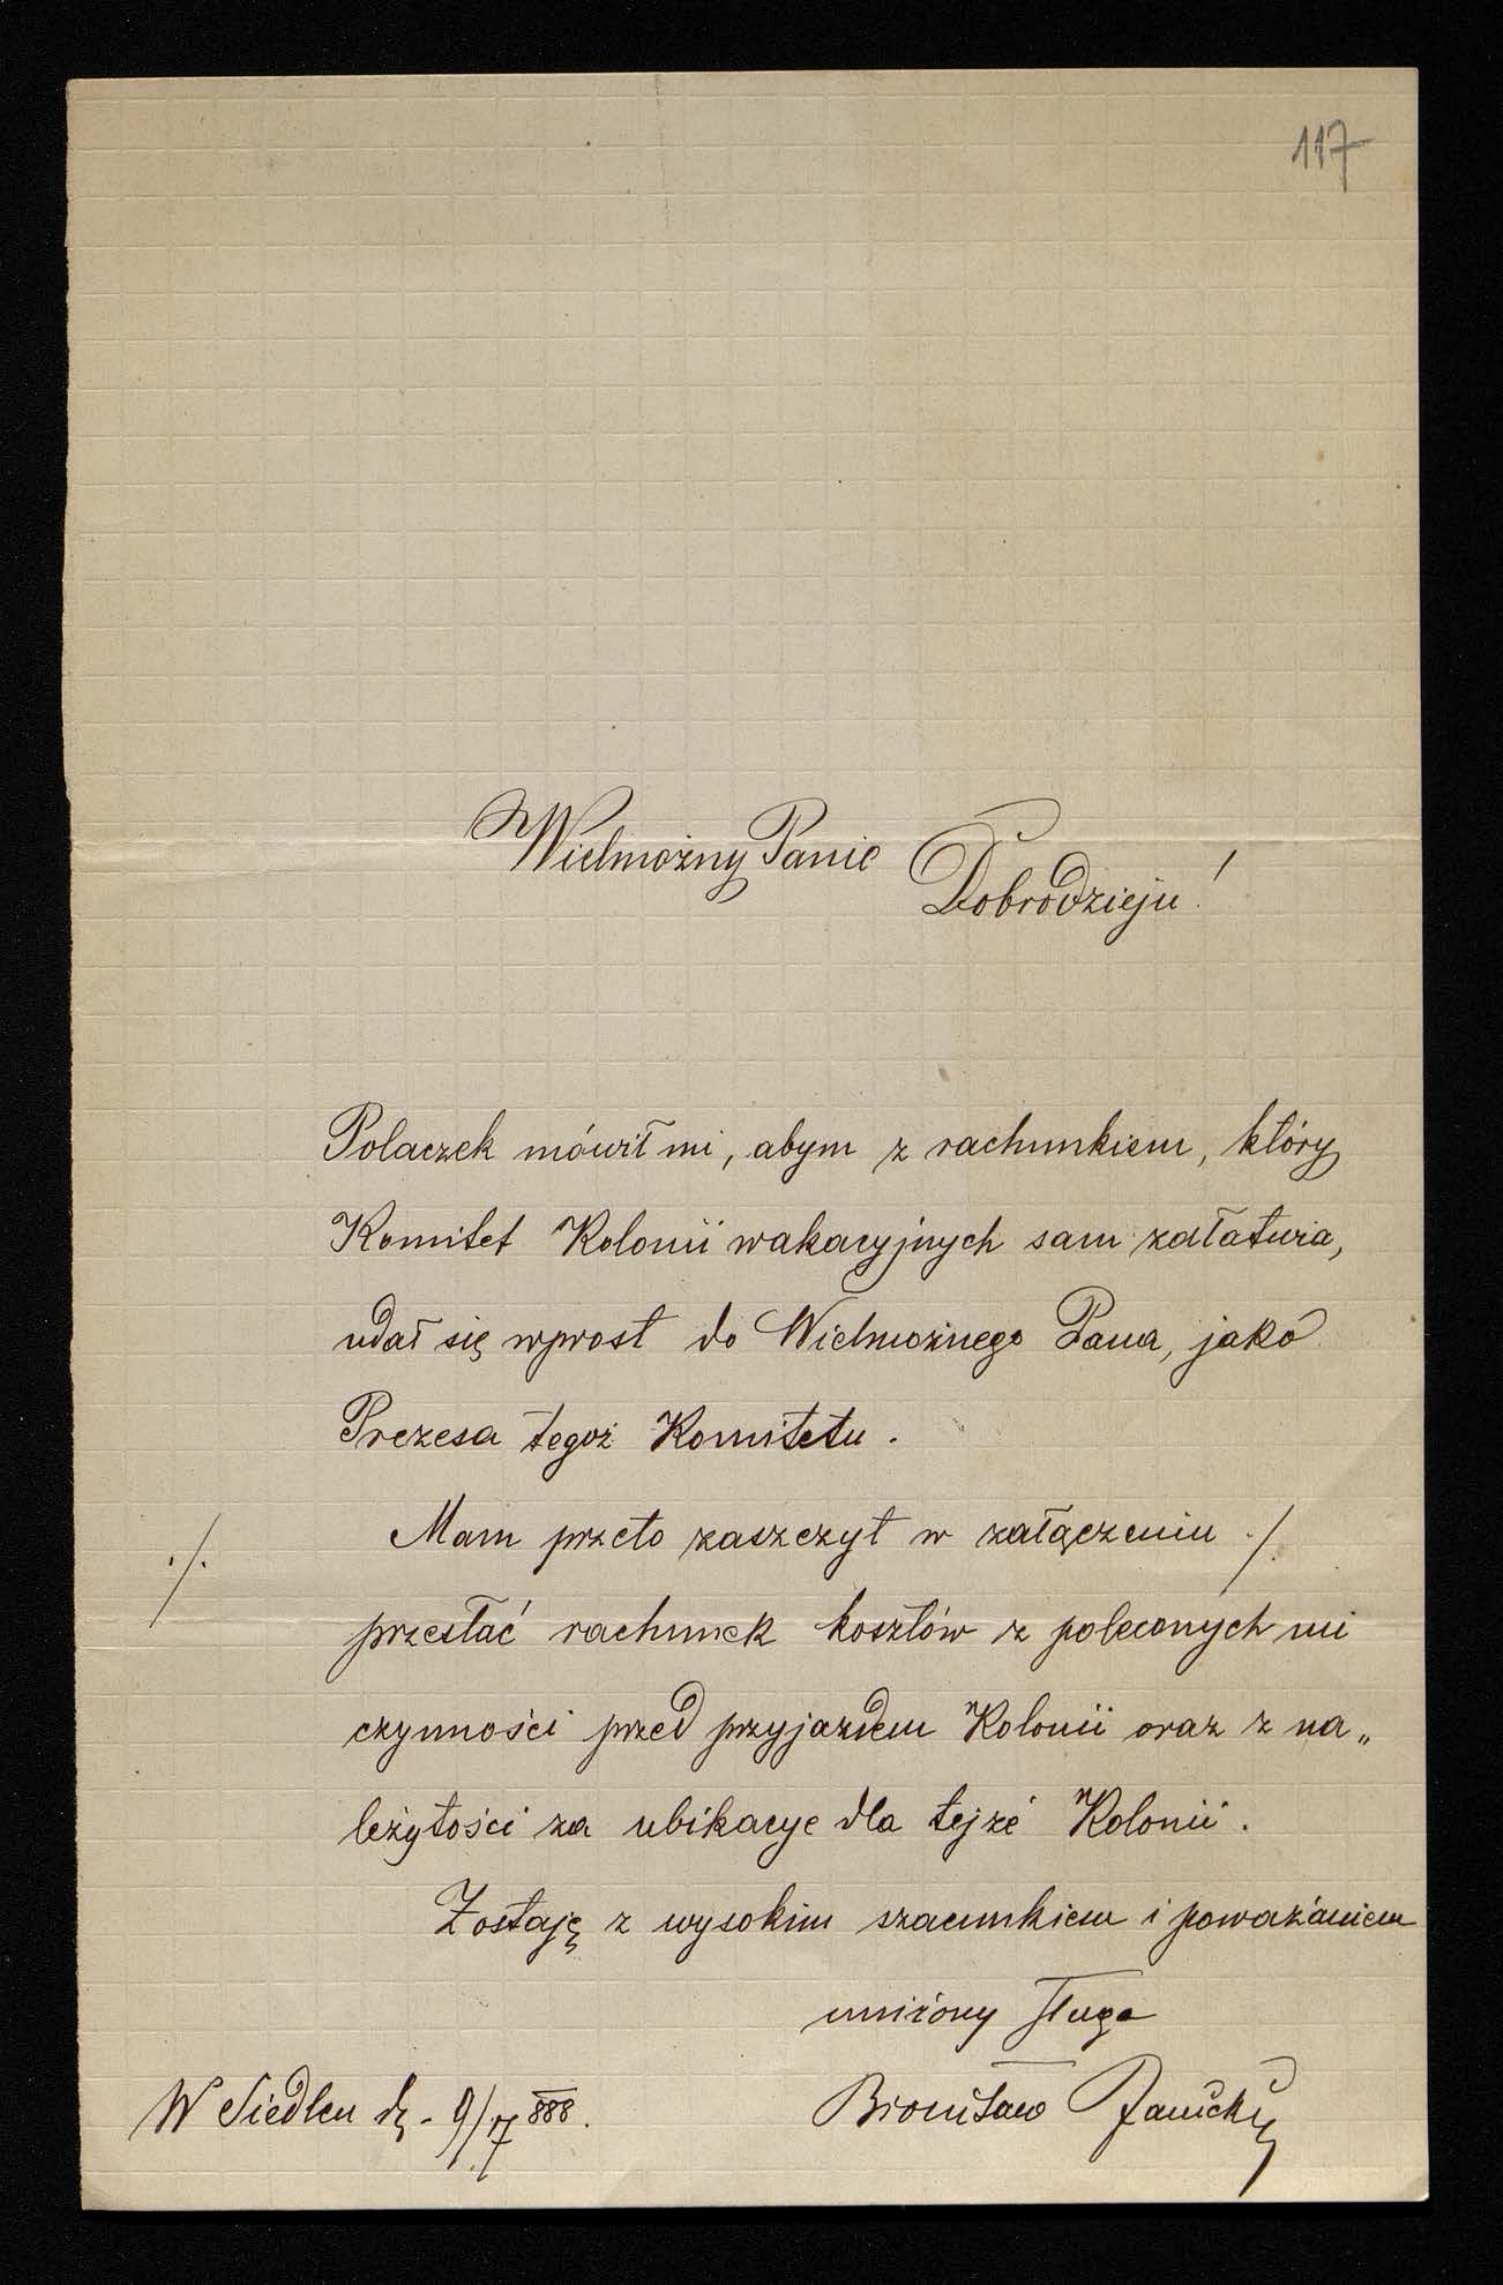 117
Wielmożny Panie
Dobrodzieju!
Polaczek mówił mi, abym z rachunkiem, który
Komitet Kolonii wakacyjnych sam załatwia,
udał się wprost do Wielmożnego Pana, jako
Prezesa tegoż Komitetu.
Mam przeto zaszczyt w załączeniu ./.
./.
przesłać rachunek kosztów z poleconych mi
czynności przed przyjazdem Kolonii oraz z na„
leżytości za ubikacye dla tejże Kolonii.
Zostaję z wysokim szacunkiem i poważaniem
uniżony sługa
Bronisław Janicki
W Siedlcu d. 9/7 888.